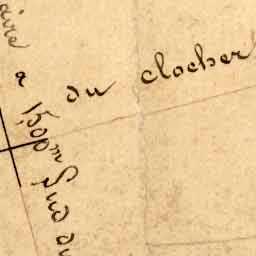 du clocher
aire a 1500m Sud du